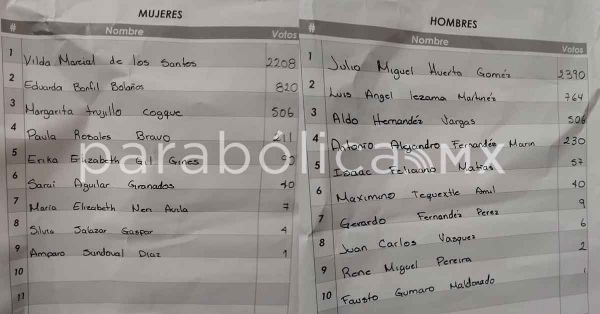 MUJERES
# Nombre Votos
1 Vilda Marcial de los Santos 2208
2 Eduarda Bonfil Bolaños 820
3 Margarita trujillo Coggue 506
4 Paula Rosales Bravo 211
5 Erika Elizabeth Gil Gines
6 Sarai Aguilar Granados 40
7 María Elizabeth Neri Avila 7
8 Silvia Salazar Gaspar 4
9 Amparo Sandoval Díaz 1
10
11
HOMBRES
# Nombre Votos
1 Julio Miguel Huerta Gomez 2390
2 Luis Angel lezama Martinez 764
3 Aldo Hernández Vargas 506
4 Antonio Alejandro Fernandez Marin 230
5 Isaac Feliciano Matias 57
6 Maximino Tequextle Amil 40
7 Gerardo Fernandez Perez 9
8 Juan Carlos Vasquez 6
9 Rene Miguel Pereira 2
10 Fausto Gumaro Maldonado 1
parabólica MX